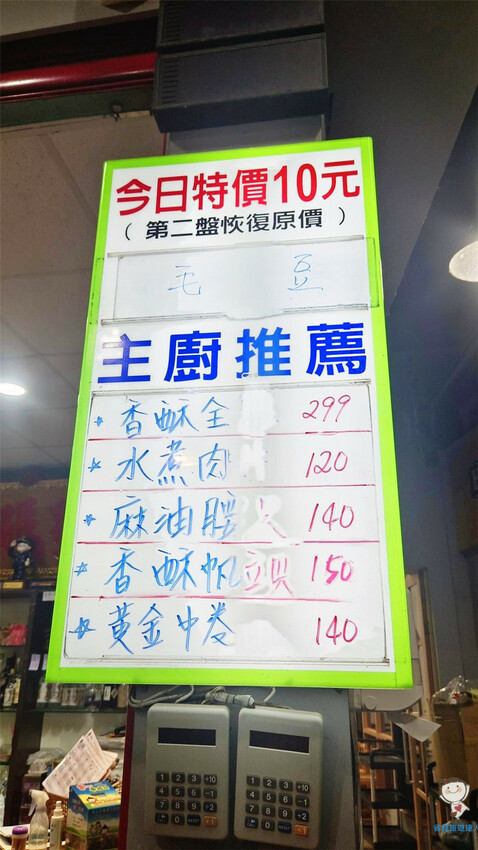 今日特價10元
（ 第二盤恢復原價 ）
毛 豆
主廚推薦
香酥全 299
水煮肉 120
麻油腰 140
香酥帆立貝 150
黃金中卷 140